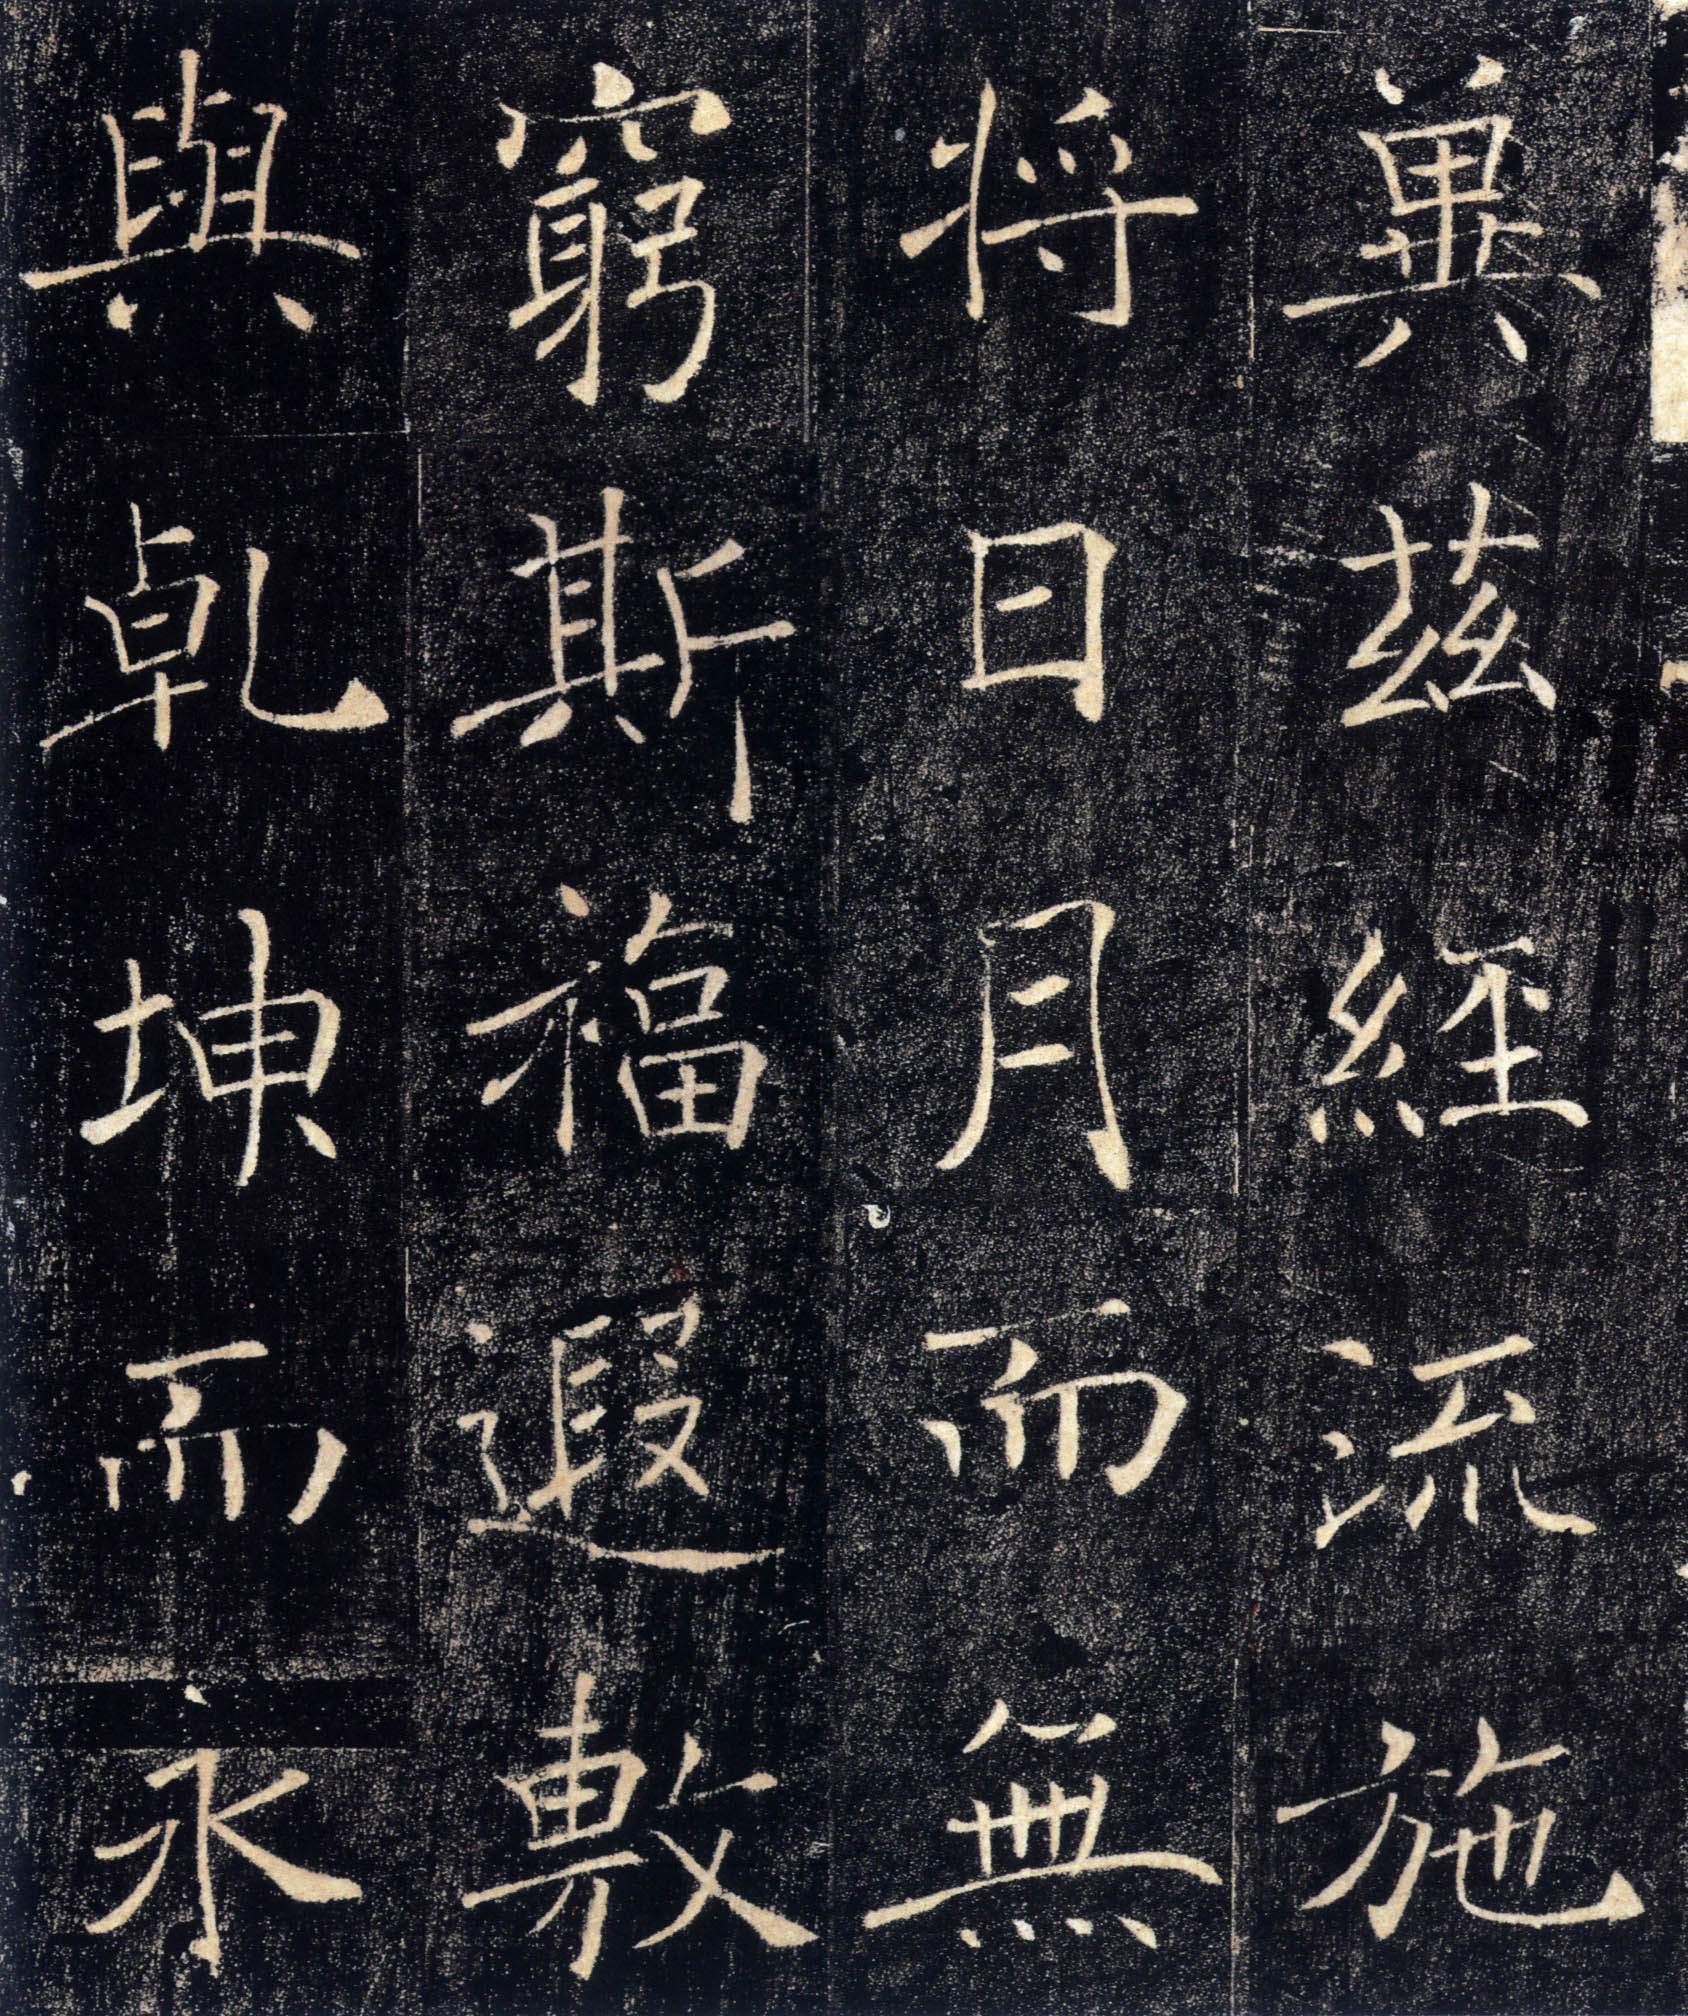 冀茲經流施
将日月而無
窮斯福遐敷
與乹坤而永